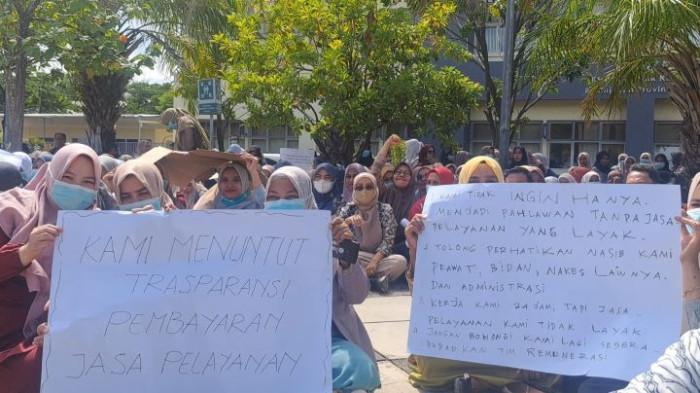 KAMI MENUNTUT
TRASPARANSI
PEMBAYARAN
JASA PELAYANAN
KAMI TIDAK INGIN HANYA
MENJADI PAHLAWAN TANPA JASA
PELAYANAN YANG LAYAK.
TOLONG PERHATIKAN NASIB KAMI
PRAWAT, BIDAN, NAKES LAINNYA.
DAN ADMINISTRASI
KERJA KAMI 24 JAM, TAPI JASA
PELAYANAN KAMI TIDAK LAYAK
JANGAN BOHONGI KAMI LAGI SEGERA
BUBARKAN TIM REMUNERASI